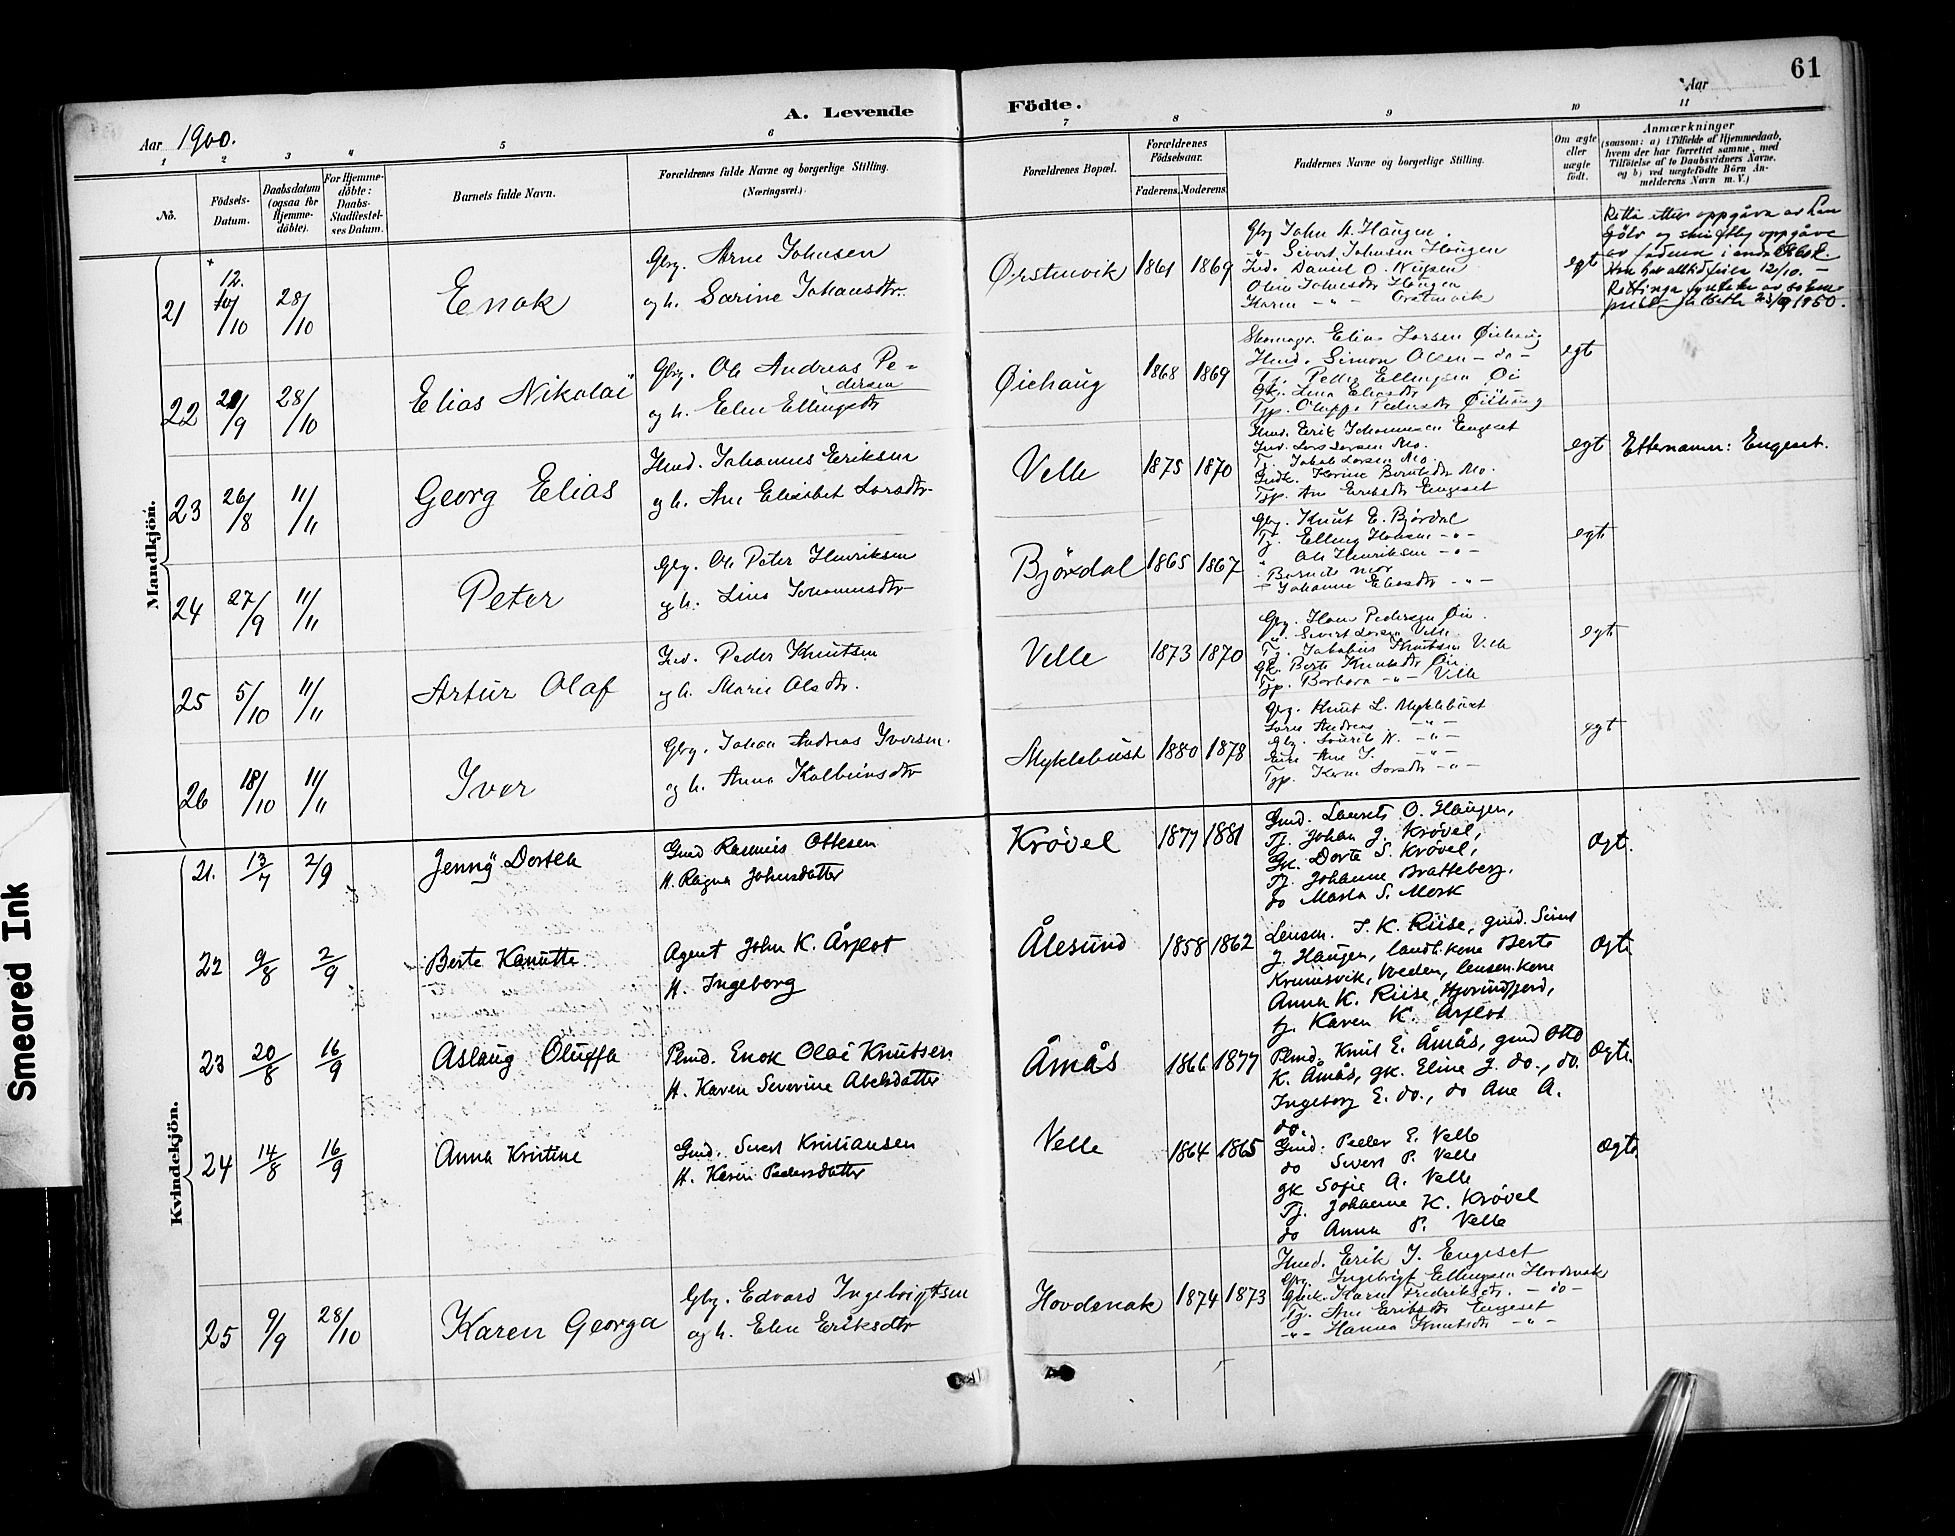 61
A. Levende Födte.
Aar 1900.
Aar
1 2 3 4 5 6 7 8 9 10 11
Nô.
Födsels-Datum.
Daabsdatum (ogsaa for Hjemme-döbte).
For Hjemme-döbte: Daabs-Stadfæstel-ses Datum.
Barnets fulde Navn.
Forældrenes fulde Navne og borgerlige Stilling.
(Næringsvei.)
Forældrenes Bopæl.
Forældrenes Födselsaar.
Faderens. Moderens.
Faddernes Navne og borgerlige Stilling.
Om ægte eller uægte födt.
Anmærkninger
(saasom: a) i Tilfælde af Hjemmedaab, hvem der har forrettet samme, med Tilföielse af to Daabsvidners Navne, og b) ved uægtefödte Börn Anmelderens Navn m. V.)
Mandkjön.
21 12. 10/10 28/10 Enok
Gbr. Arne Johnsen
og h. Sarine Johansdtr.
Ørstenvik 1861 1869
Gbr John A. Haugen.
-"- Sivert Johnsen Haugen
Ind. Daniel O.
egt
22 20/9 28/10 Elias Nikolai
Gbr. Ole Andreas Pe-
dersen
og h. Elen Ellingsdtr
Øiehaug 1868 1869
Elias Larsen Øiehaug
Simon Olsen - do -
Tj. Peder Ellingsen Øie
Gk. Lina Eliasdtr
Tjp. Oluffa Pedersdtr Øiehaug
egt
23 26/8 11/11 Georg Elias
Ind. Johannes Eriksen
og h. Ane Elisabet Larsdtr
Velle 1875 1870
Erik Johannesen Engeset
Ind. Lars Larsen Mo.
Tj. Jakob Larsen Mo.
Tjp. Ane Eriksdtr Engeset
egt Etternamn: Engeset.
24 27/9 11/11 Peter
Gbr. Ole Peter Henriksen
og h. Lina Johannesdtr
Bjørdal 1865 1867
Gbr. Knut E. Bjørdal
Tj. Elling Hansen -"-
" Ole Henriksen -"-
Barnets mor
Johanne Eliasdtr -"-
egt
25 5/10 11/11 Artur Olaf
Ind. Peder Knutsen
og h. Marie Olsdtr.
Velle 1873 1870
Gbr. Hans Pedersen Øie.
". Sivert Larsen Velle.
Tj. Jakobus Knutsen Velle
Gk. Berte Knutsdtr Øie.
Tjp. Barbara -"- Velle
egt
26 18/10 11/11 Iver
Gbr. Johan Andreas Iversen.
og h. Anna Kolbeinsdtr
Myklebust 1880 1878
Gbr. Knut L. Myklebust
Andreas -"-
Gbr. Laurits N. -"-
Ane I. -"-
Tjp. Karen Larsdtr -"-
egt
Kvindekjön.
21. 13/7 2/9 Jenny Dortea
Gmd Rasmus Ottesen
H. Ragna Johnsdatter
Krøvel 1877 1881
Gmd. Laurits O. Haugen,
Tj. Johan J. Krøvel,
Gk. Dorte S. Krøvel,
Tj. Johanne Bratteberg.
do Marta S. Mork
Ægt.
22 9/8 2/9 Berte Kanutte
Agent John K. Årflot
H. Ingeborg
Ålesund 1858 1862
Lensm. J. K. Riise, gmd. Sivert
J. Haugen, landh.kone Berte
Krumsvik, Voeden, lensm.kone
Anna K. Riise, Hjørundfjord,
tj. Karen K. Årflot
Ægte
23 20/8 16/9 Aslaug Oluffa
Plmd. Enok Olai Knutsen
H. Karen Severine Abelsdatter
Åmås 1866 1877
Plmd. Knut E. Åmås, gmd Otto
K. Åmås, gk. Eline J. do., do.
Ingeborg E. do., do Ane A.
do.
Ægte.
24 14/8 16/9 Anna Kristine
Gmd. Sivert Kristiansen
H. Karen Pedersdatter
Velle 1864 1865
Gmd: Peder E. Velle
do Sivert P. Velle
gk Sofie A. Velle
Tj. Johanne K. Krøvel
do Anna P. Velle
Ægte
25 9/9 28/10 Karen Georga
Gbr. Edvard Ingebrigtsen
og h. Elen Eriksdtr
Hovdenak 1874 1873
Erik J. Engeset
Gbr. Ingebrigt Ellingsen Hovdenak
Karen Fredriksdtr. - do -
Tj. Ane Eriksdtr Engeset
-"- Hanna Knutsdtr -"-
Smeared Ink